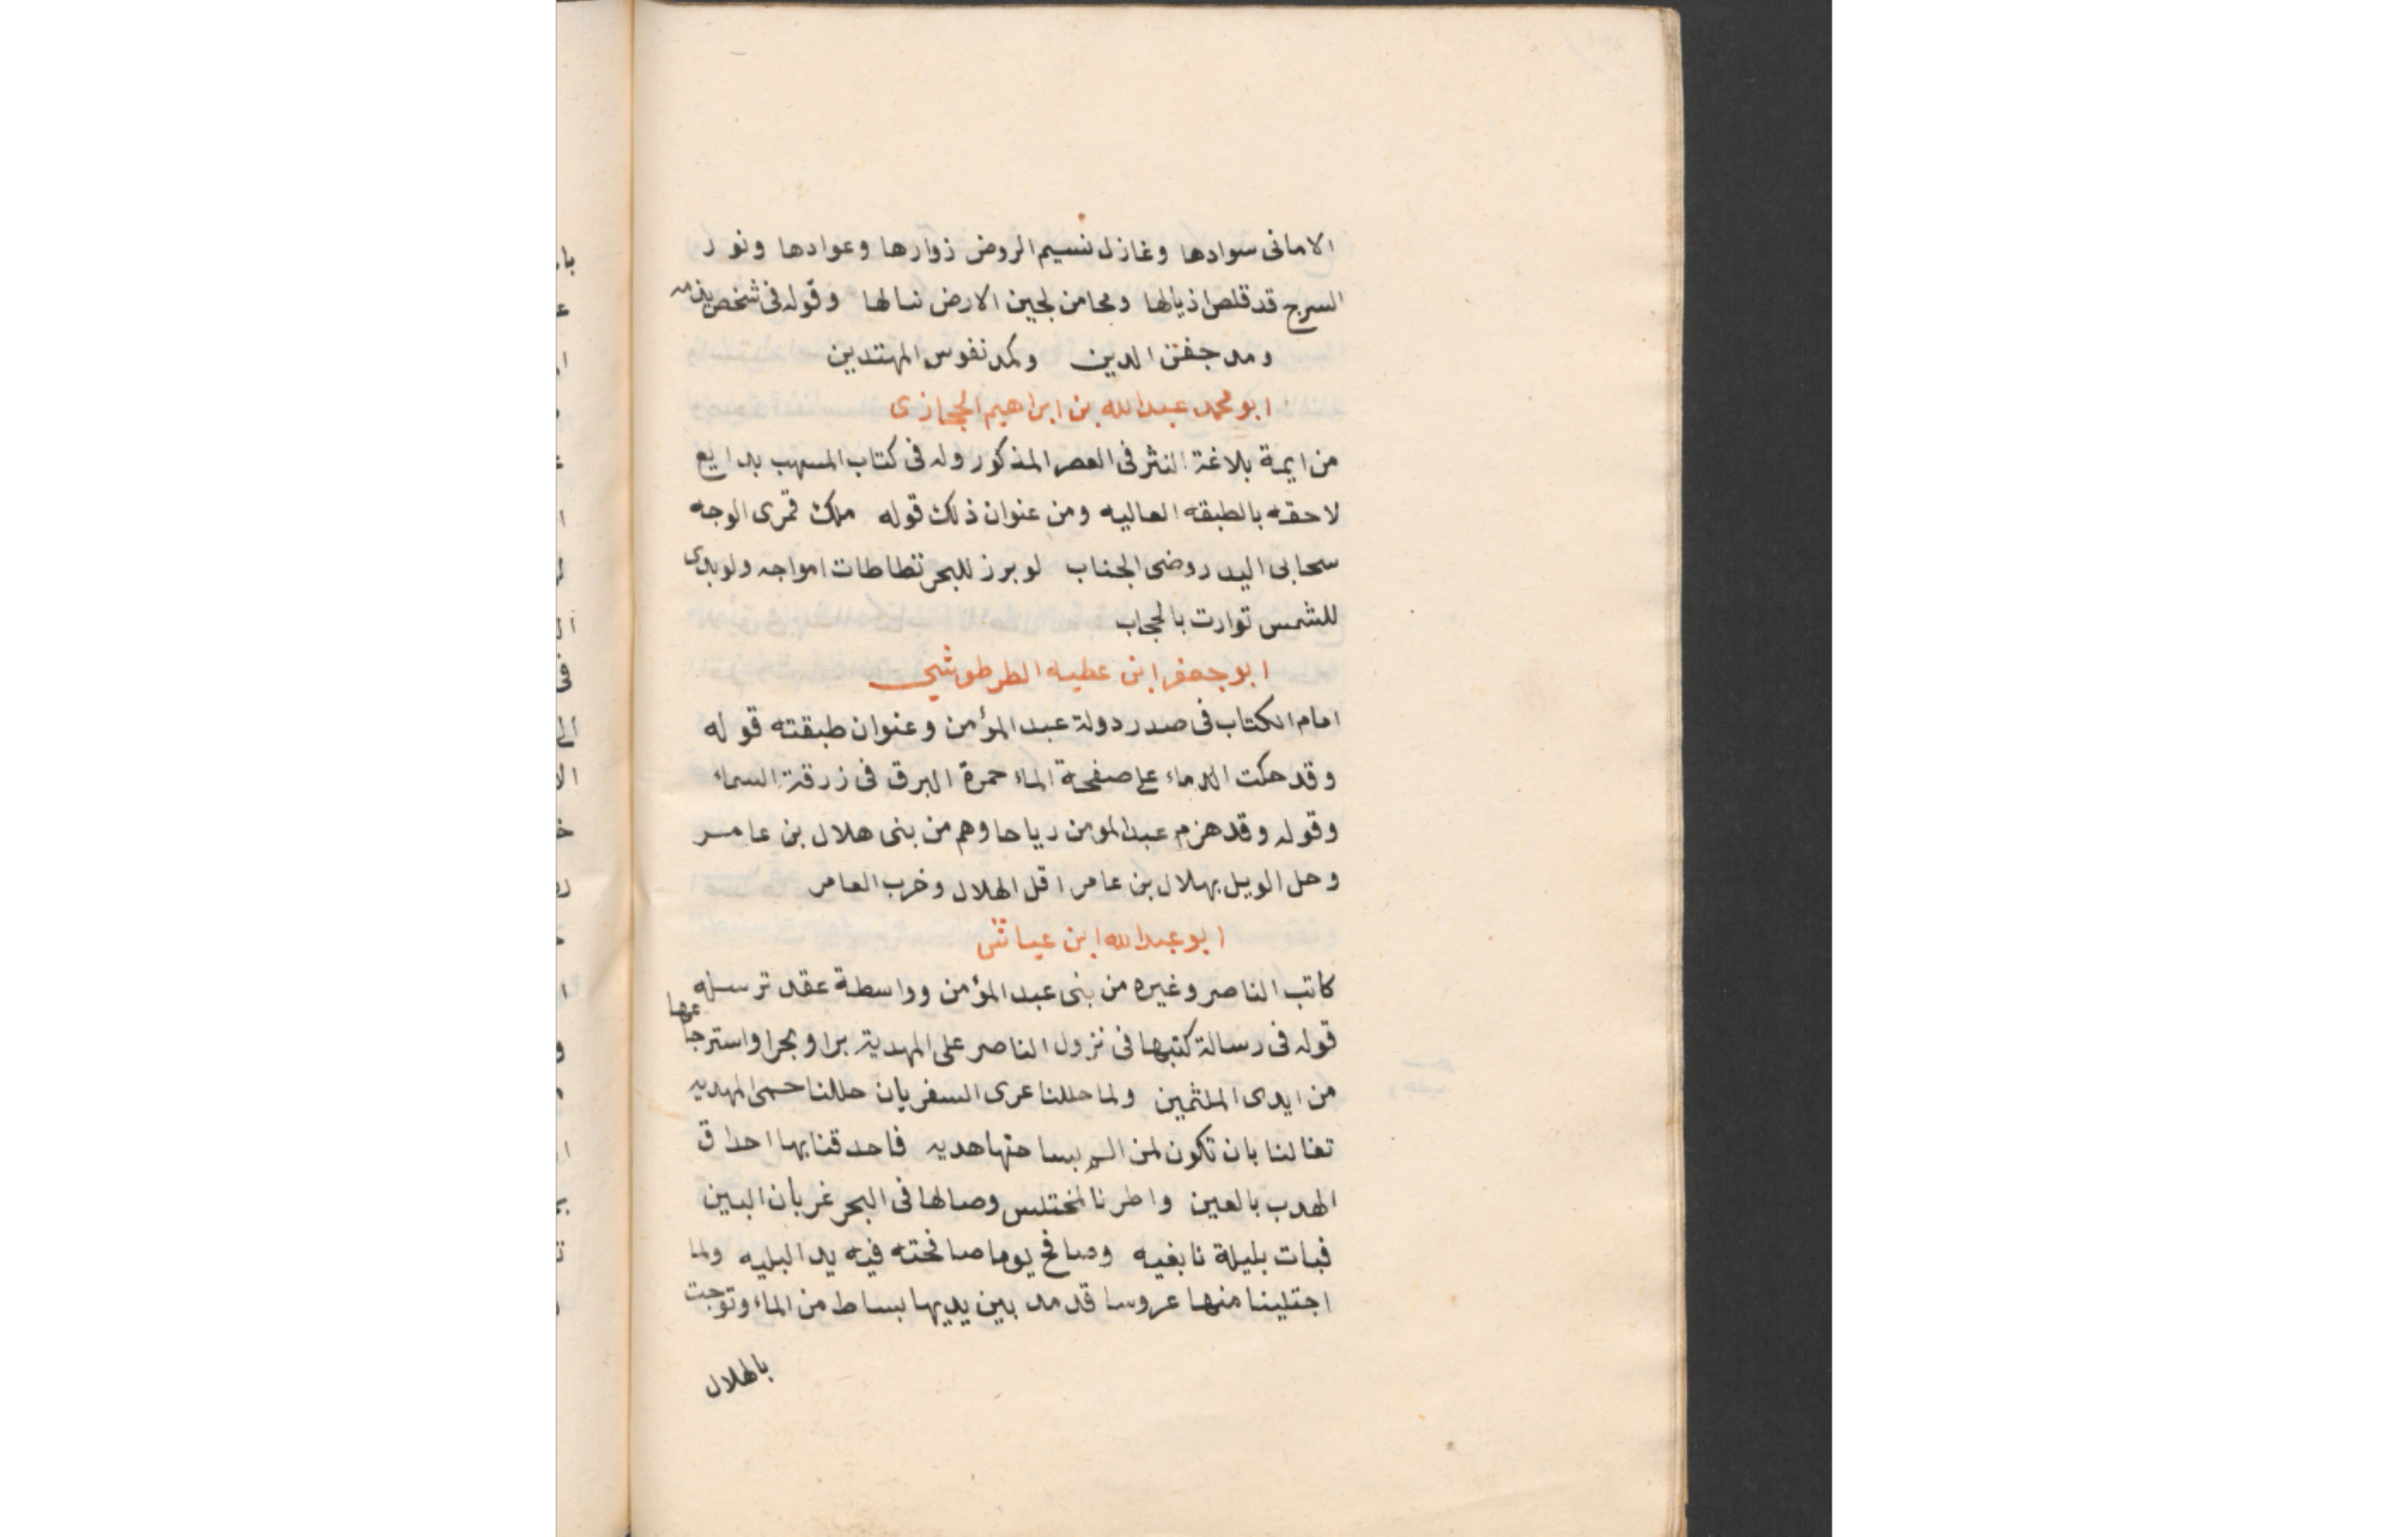 الامانى سوادها وغازل نسيم الروض زوارها وعوادها ونور
السرج قد قلص اذيالها ومحا من لجين الارض نبالها وقوله فى شخص يذمه
ومد جفن الدين وكمد نفوس المهتدين
ابو محمد عبد الله بن ابراهيم الحجازى
من ايمة بلاغة النثر فى العصر المذكور وله فى كتاب المسهب بدايع
لاحقه بالطبقه العاليه ومن عنوان ذلك قوله ملك قمرى الوجه
سحابى اليد روضى الجناب لو برز للبحر تطاطات امواجه ولو بدى
للشمس توارت بالحجاب
ابو جعفر ابن عطيه الطرطوشى
امام الكتاب فى صدر دولة عبد المؤمن وعنوان طبقته قوله
وقد حكت الدماء على صفحة الماء حمرة البرق فى زرقة السماء
وقوله وقد هزم عبد المومن رياحا وهم من بنى هلال بن عامر
وحل الويل بهلال بن عامر اقل الهلال وخرب العامر
ابو عبد الله ابن عياش
كاتب الناصر وغيره من بنى عبد المؤمن وواسطة عقد ترسله
قوله فى رسالة كتبها فى نزول الناصر على المهدية برا وبحرا واسترجاعها
من ايدى الملثمين ولما حللنا عرى السفر بان حللنا حمى المهديه
تفالنا بان تكون لمن بساحتها هديه فاحدقنا بها احداق
الهدب بالعين واطرنا لمختلس وصالها فى البحر غربان البين
فبات بليلة نابغيه وصافح يوما صافحته فيه يد البليه ولما
اجتلينا منها عروسا قد مد بين يديها بساط من الماء وتوجت
بالهلال